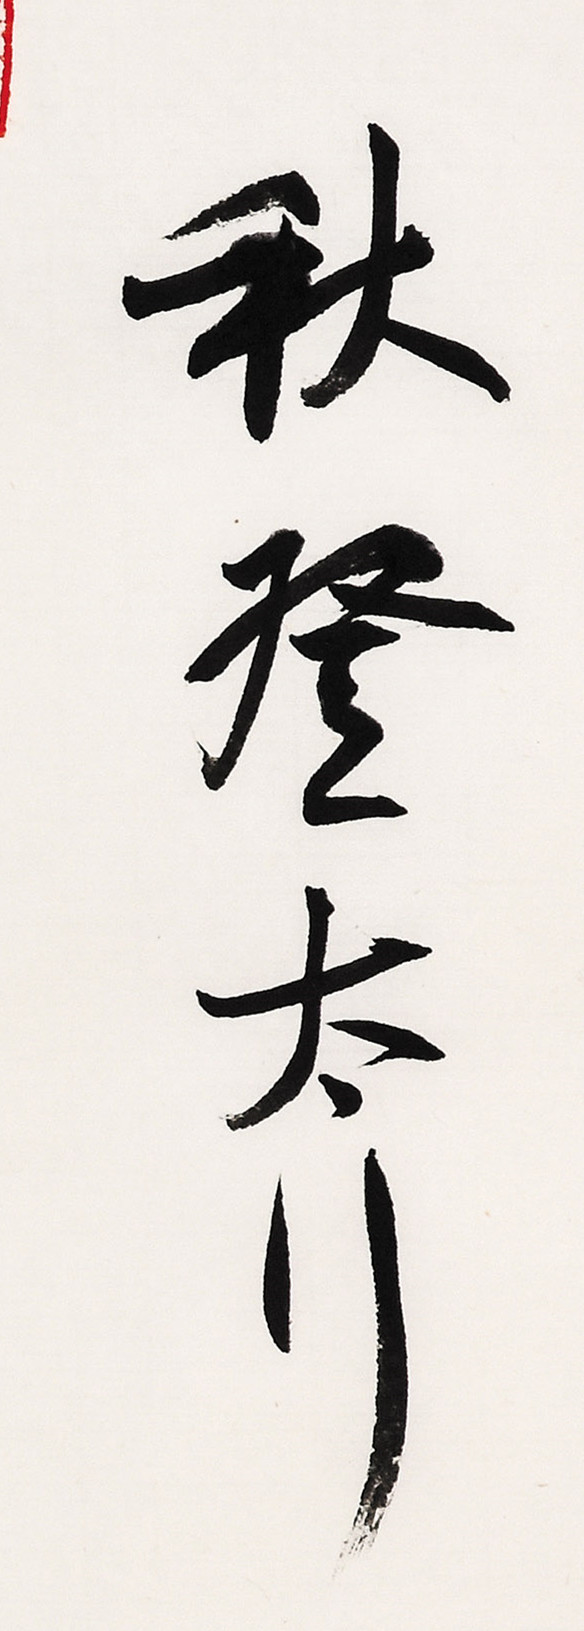 秋登太行